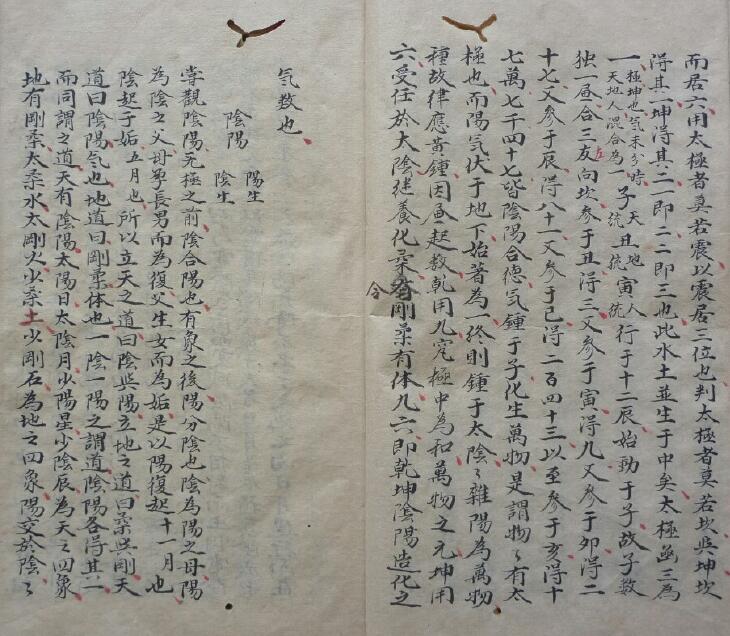 而居六用太極者莫若震以震居三位也判太極者莫若坎與坤坎
得其一坤得其二一即二二即三也此水土並生于中矣太極函三為
一極坤也氣未分時天地人混合為一子天統丑地統寅人統行于十二辰始動于子故子數
独一昼合三左友向坎参于丑得三又参于寅得九又参于卯得二
十七又参于辰得八十一又参于巳得二百四十三以至参于亥得十
七萬七千四十七皆陰陽合德氣鍾于子化生萬物是謂物々有太
極也而陽氣伏于地下始著為一終則鍾于太陰々雜陽為萬物
種故律應黃鍾因昼一起数乾用九究極中為和萬物之元坤用
六受任於太陰継養化柔分剛柔有体九六即乾坤陰陽造化之
氣数也
陰陽 陽生 陰生
嘗觀陰陽无極之前陰合陽也有象之後陽分陰也陰為陽之母陽
為陰之父母孕長男而為復父生女而為姤是以陽復起十一月也
陰起于姤五月也所以立天之道曰陰與陽立地之道曰柔與剛天
道曰陰陽氣也地道曰剛柔体也一陰一陽之謂道陰陽各得其一
而同謂之道天有陰陽太陽日太陰月少陽星少陰辰為天之四象
地有剛柔太柔水太剛火少柔土少剛石為地之四象陽交於陰々